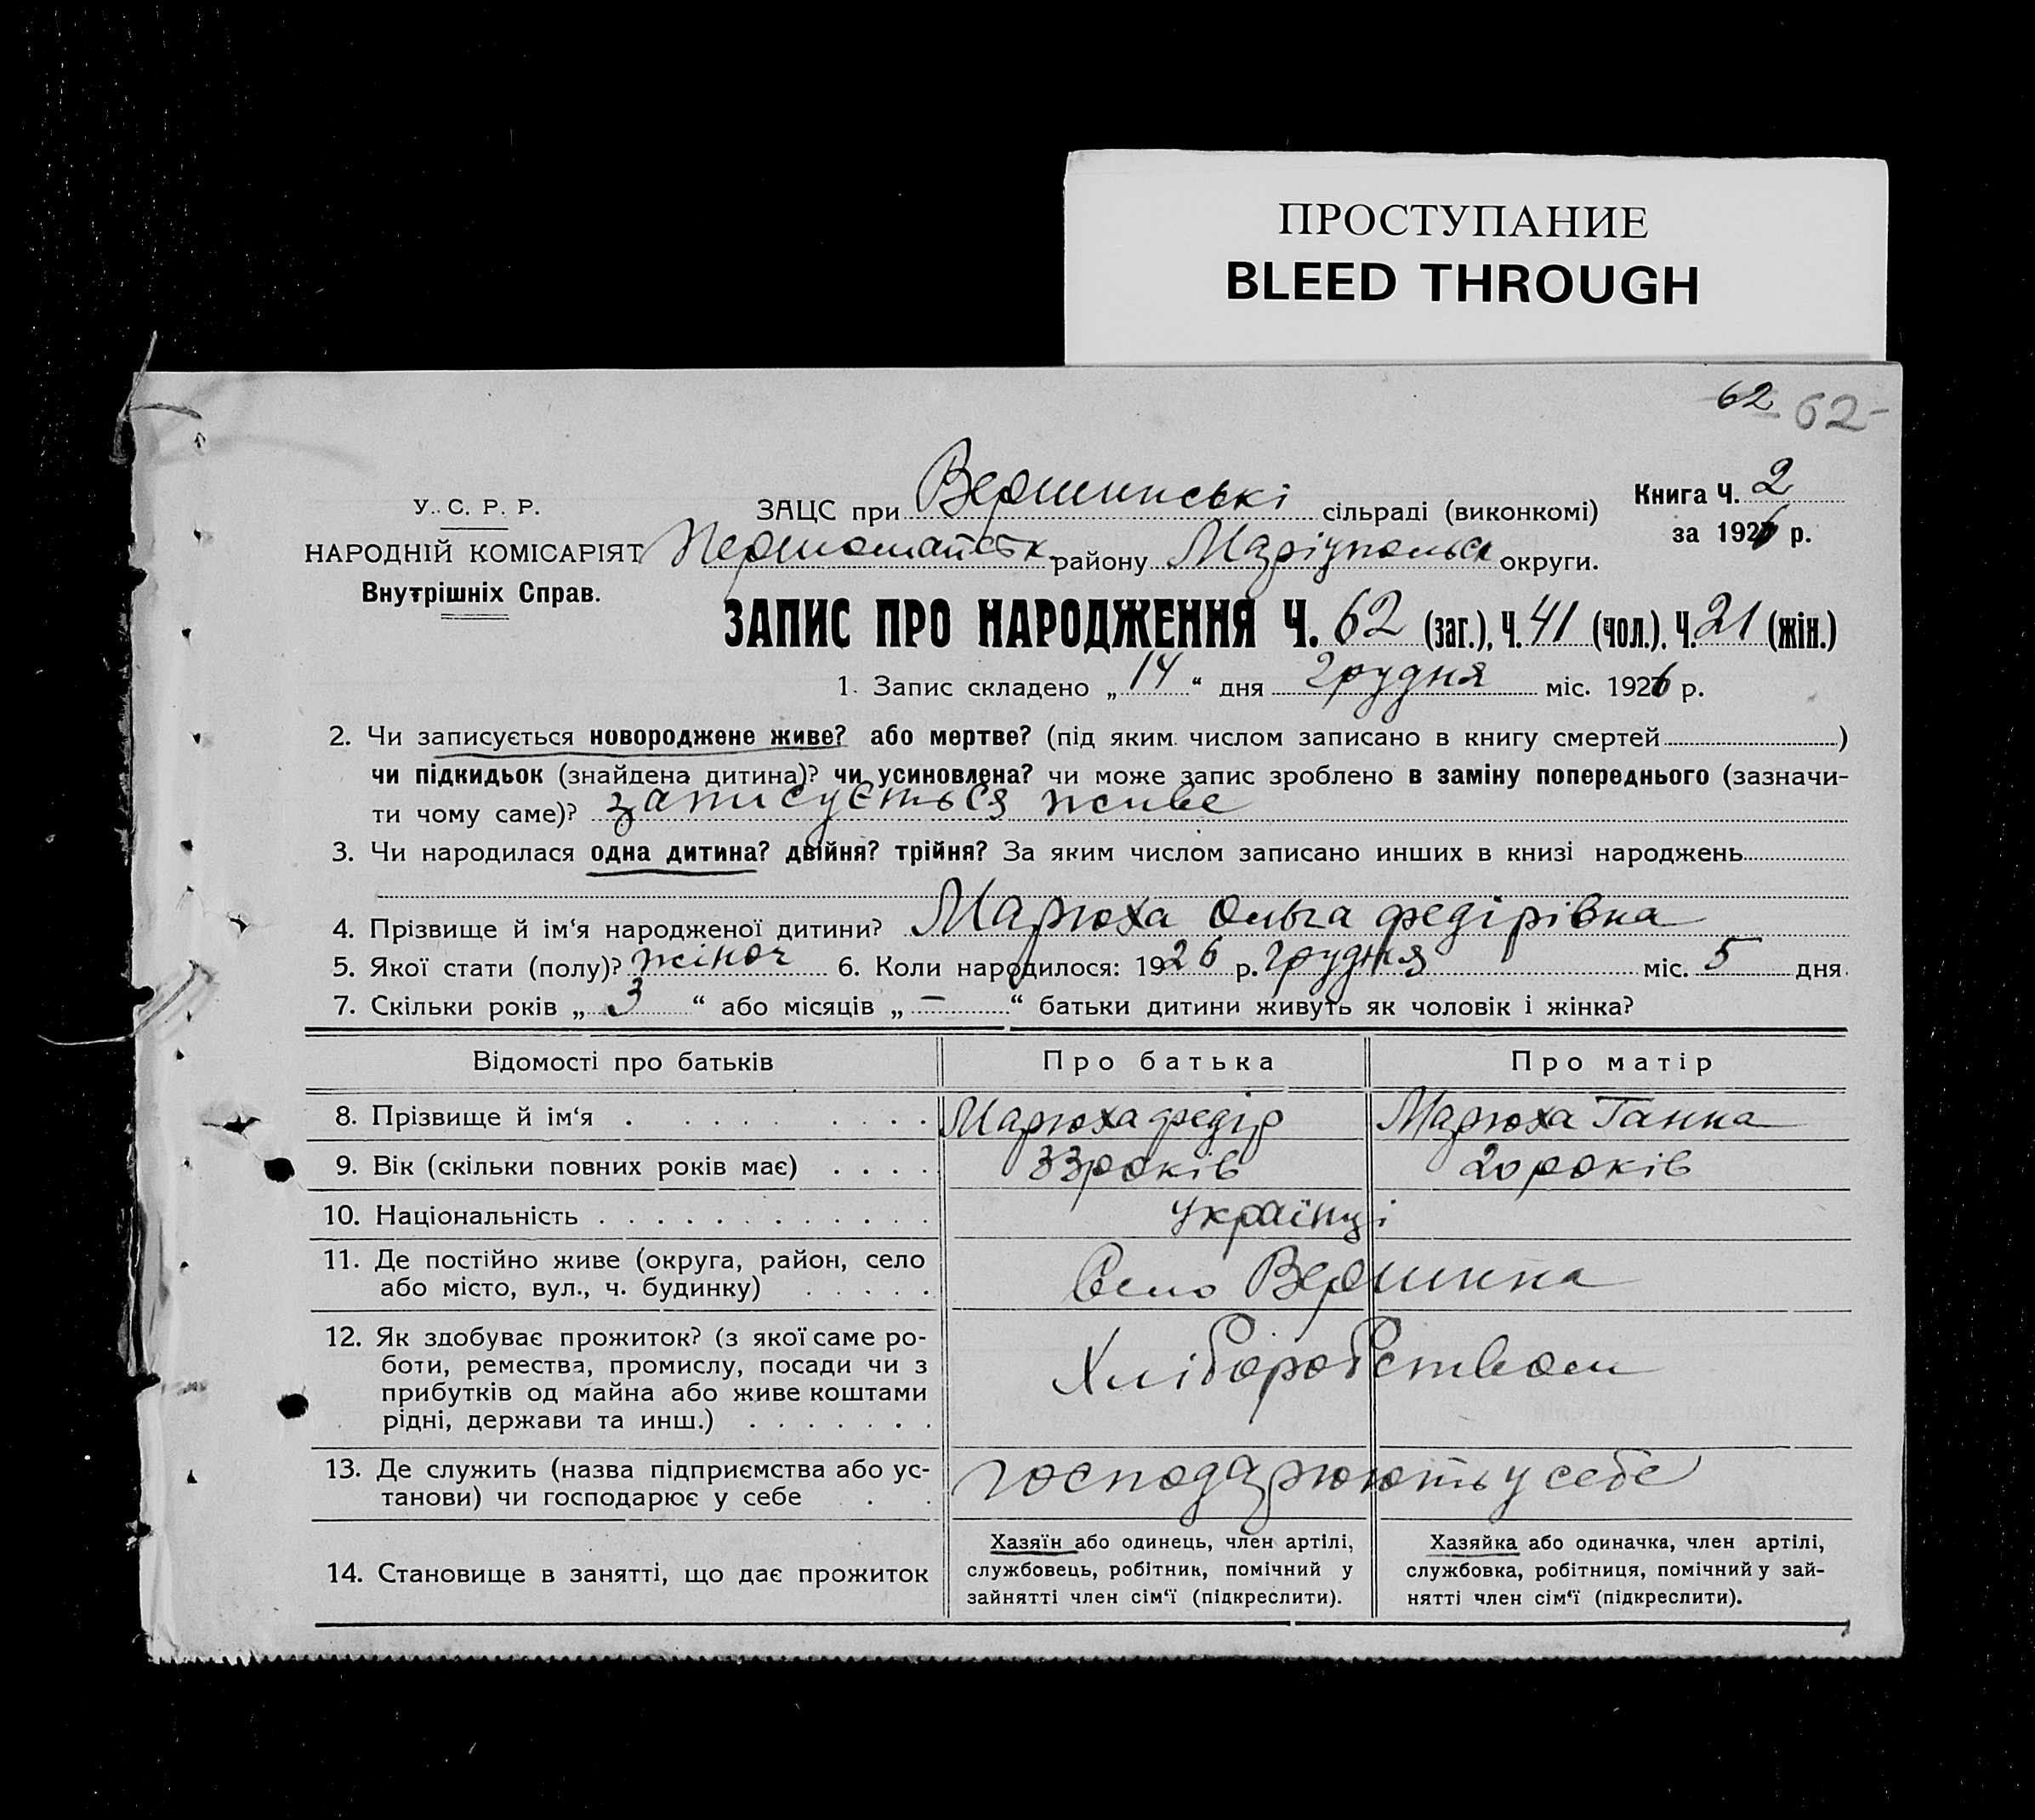 ПРОСТУПАНИЕ
BLEED THROUGH
62 62-
У. С. Р. Р.
НАРОДНІЙ КОМІСАРІЯТ
Внутрішніх Справ.
ЗАЦС при Вершинські сільраді (виконкомі)
Книга Ч. 2
за 1926 р.
Першомайськ району Маріупольськ округи.
ЗАПИС ПРО НАРОДЖЕННЯ Ч. 62 (заг.), Ч. 41 (чол.), Ч. 21 (жін.)
1. Запис складено „ 14 “ дня Грудня міс. 1926 р.
2. Чи записується новороджене живе? або мертве? (під яким числом записано в книгу смертей )
чи підкидьок (знайдена дитина)? чи усиновлена? чи може запис зроблено в заміну попереднього (зазначи-
ти чому саме)? записується живе
3. Чи народилася одна дитина? двійня? трійня? За яким числом записано инших в книзі народжень
4. Прізвище й ім‘я народженої дитини? Марюха Ольга Федірівна
5. Якої стати (полу)? жіноч 6. Коли народилося: 1926 р. Грудня міс. 5 дня.
7. Скільки років „ 3 “ або місяців „ – “ батьки дитини живуть як чоловік і жінка?
Відомості про батьків Про батька Про матір
8. Прізвище й ім‘я Марюха Федір Марюха Ганна
9. Вік (скільки повних років має) 33 років 20 років
10. Національність українці
11. Де постійно живе (округа, район, село
або місто, вул., ч. будинку) Село Вершина
12. Як здобуває прожиток? (з якої саме ро-
боти, ремества, промислу, посади чи з
прибутків од майна або живе коштами
рідні, держави та инш.) Хліборобством
13. Де служить (назва підприємства або ус-
танови) чи господарює у себе господарюють у себе
14. Становище в занятті, що дає прожиток
Хазяїн або одинець, член артілі,
службовець, робітник, помічний у
зайнятті член сім‘ї (підкреслити).
Хазяйка або одиначка, член артілі,
службовка, робітниця, помічний у зай-
нятті член сім‘ї (підкреслити).